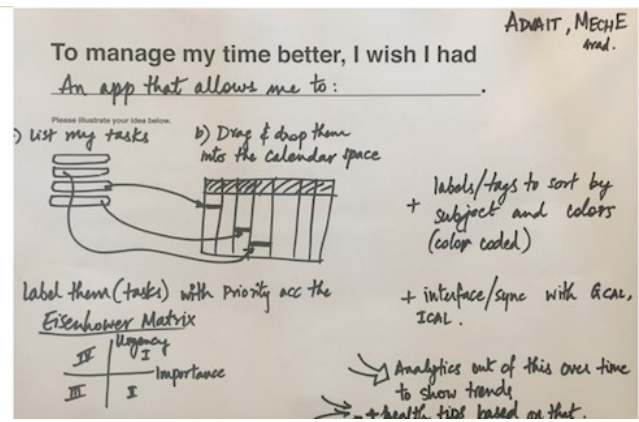 ADVAIT, MECHE
Grad.
To manage my time better, I wish I had
An app that allows me to: .
Please illustrate your idea below.
) List my tasks
b) Drag & drop them
into the calendar space
+ labels/tags to sort by
subject and colors
(color coded)
Label them (tasks) with Priority acc the
Eisenhower Matrix
+ interface/sync with GCAL,
ICAL.
IV
Urgency
I
Importance
III
II
Analytics out of this over time
to show trends
+ health tips based on that.